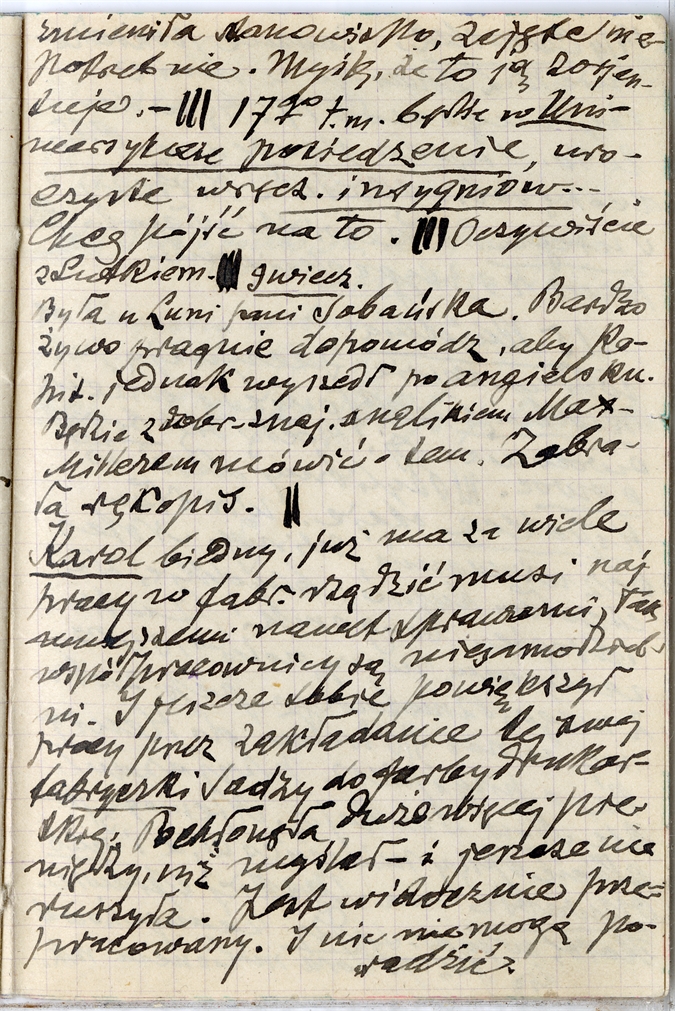 zmieniła stanowisko, zajęte nie-
potrzebnie. Myślę, że to ją zorjen-
tuje. – III 17 t.m. będzie w Uni-
wersytecie posiedzenie, uro-
czyste wręcz. insygniów...
Chcę pójść na to. III Oczywiście
z Lutkiem. III 9 wiecz.
Była u Luni pani Sobańska. Bardzo
żywo pragnie dopomódz, aby Ko-
pit. jednak wyszedł po angielsku.
Będzie z dobr. znaj. anglikiem Max-
Millerem mówić o tem. Zabra-
ła rękopis. II
Karol biedny, już ma za wiele
pracy w fabr. rządzić musi naj
mniejszemi nawet sprawami, tak
współpracownicy są niesamodziel-
ni. I jeszcze sobie powiększył
pracy przez zakładanie tej swej
fabryczki sadzy do farby drukar-
skiej. Pochłonęła dużo więcej pie-
niędzy, niż myślał – i jeszcze nie
ruszyła. Jest widocznie prze=
pracowany. I nic nie mogę po-
radzić.